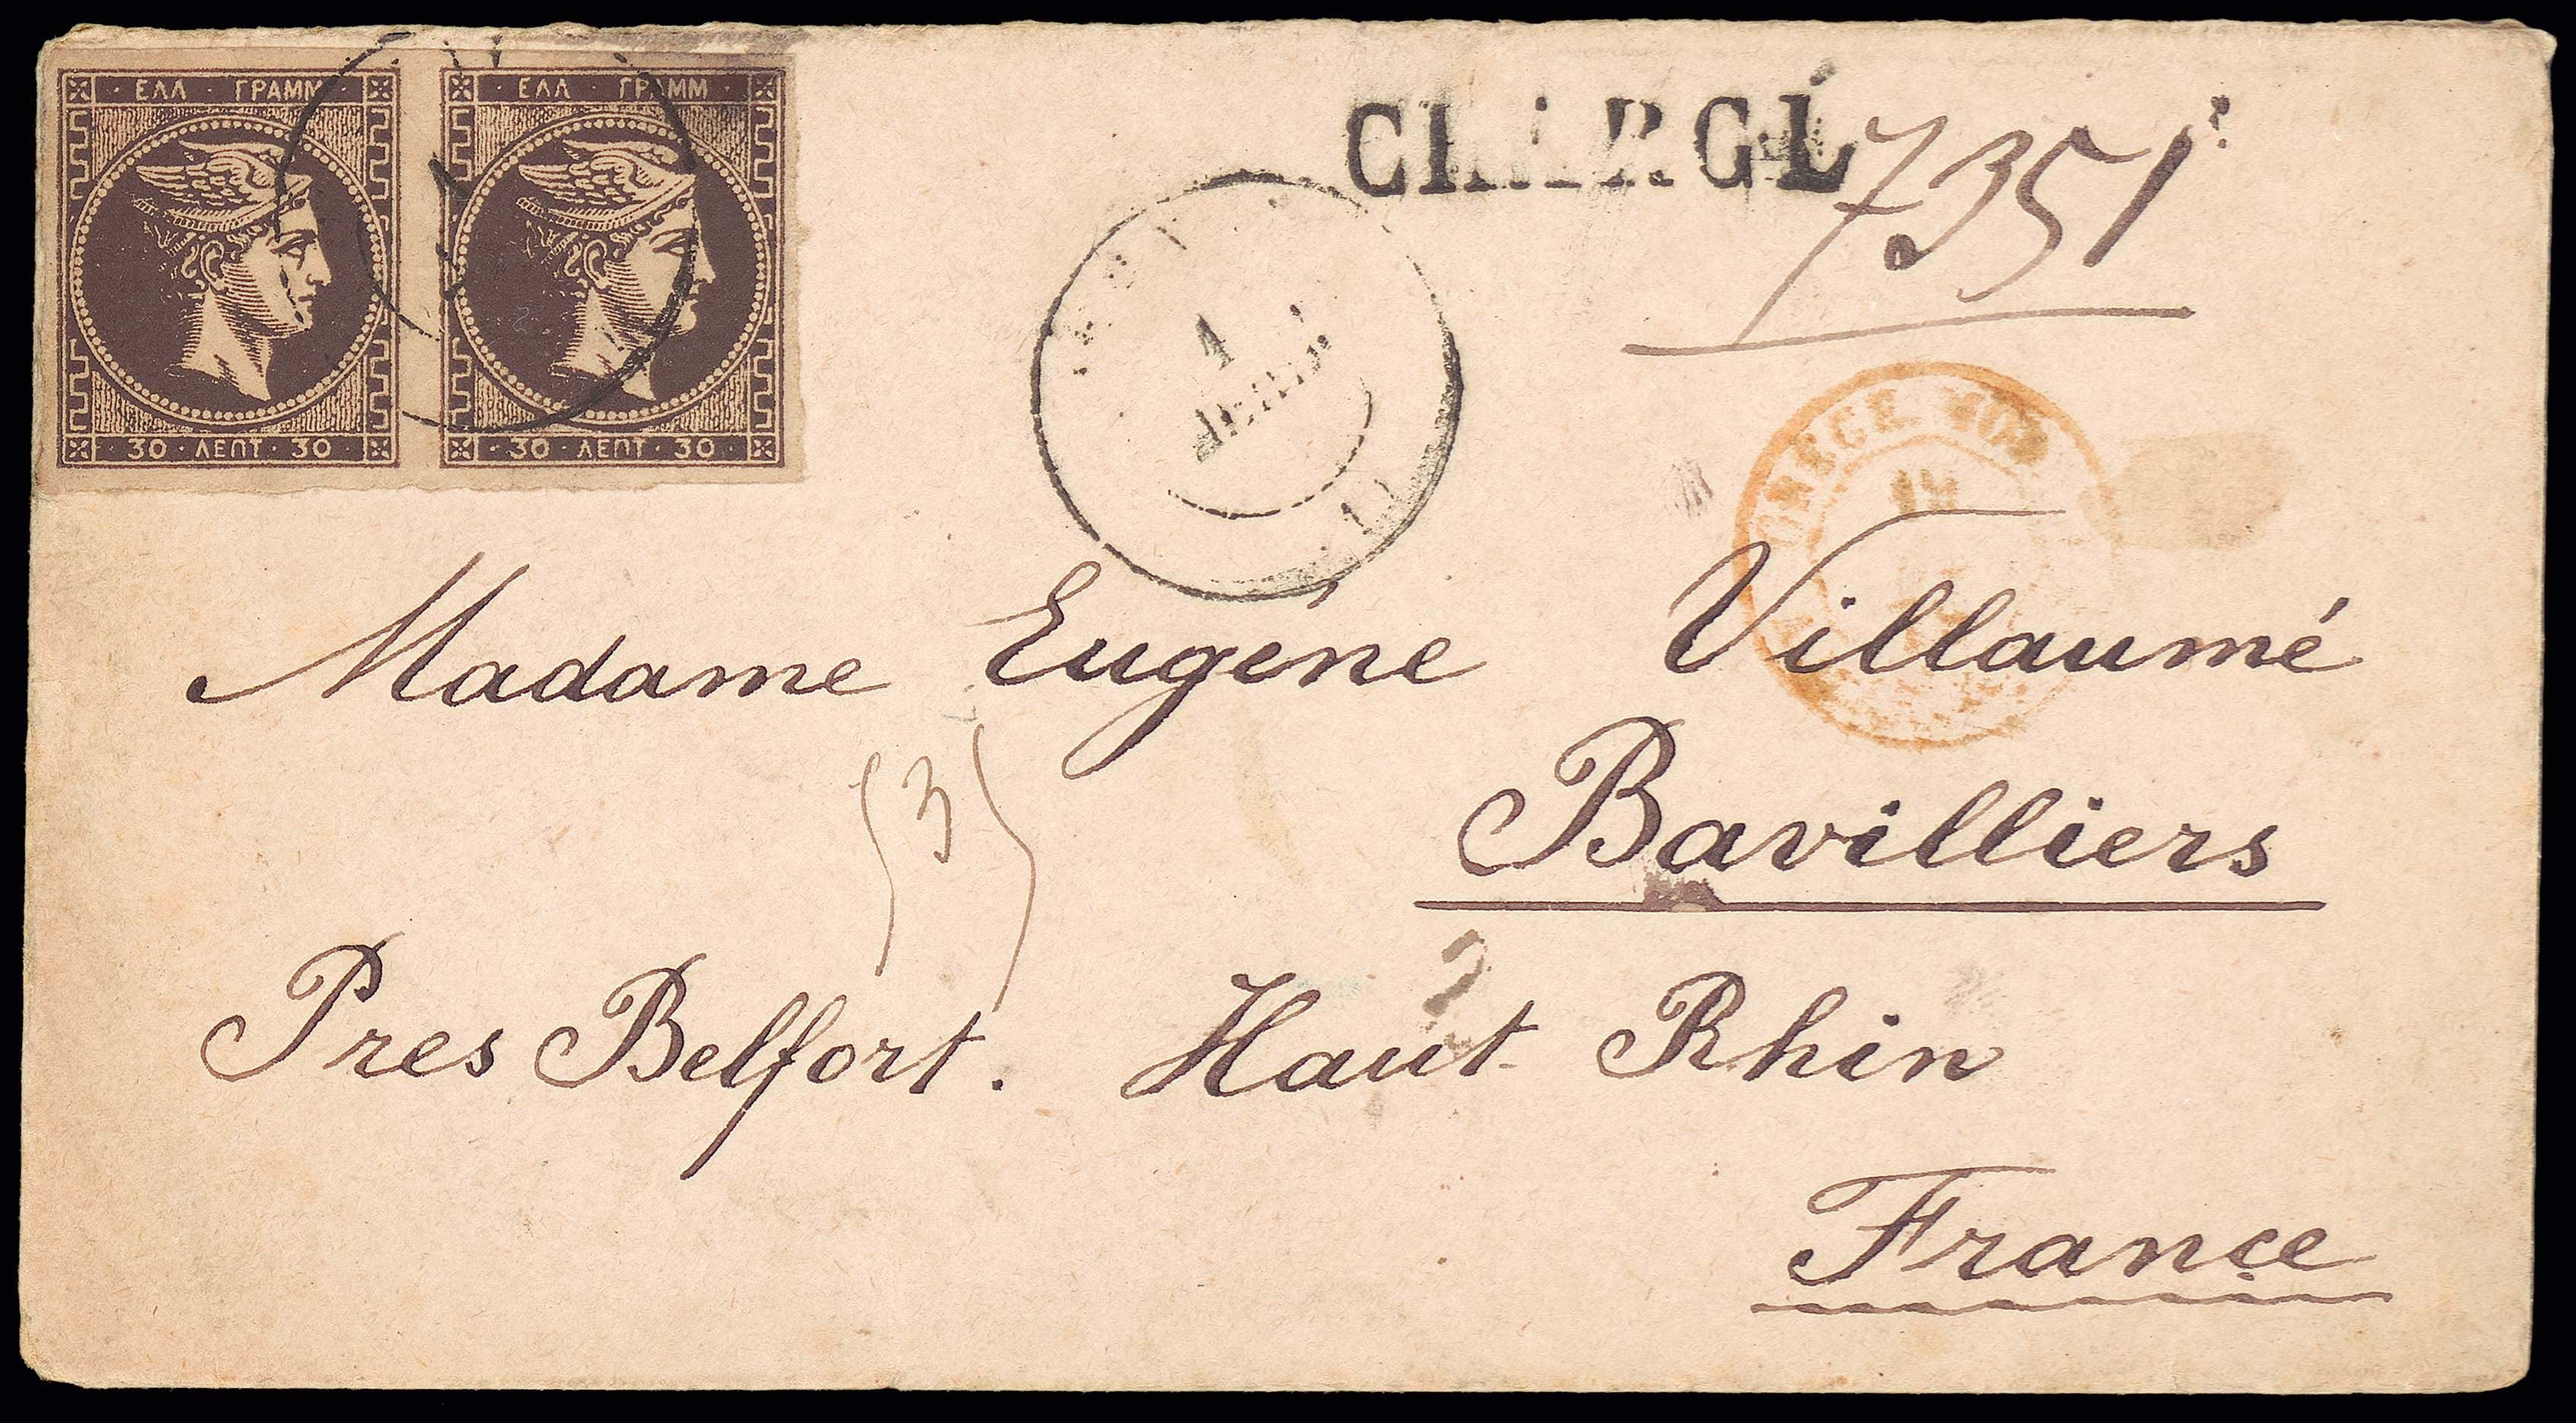 · ΕΛΛ · ΓΡΑΜΜ ·
· ΕΛΛ · ΓΡΑΜΜ ·
30 · ΛΕΠΤ · 30
· 30 · ΛΕΠΤ · 30 ·
CHARGÉ
7351
1
Madame Eugéne Villaumé
(3)
Bavilliers
Pres Belfort. Haut Rhin
France